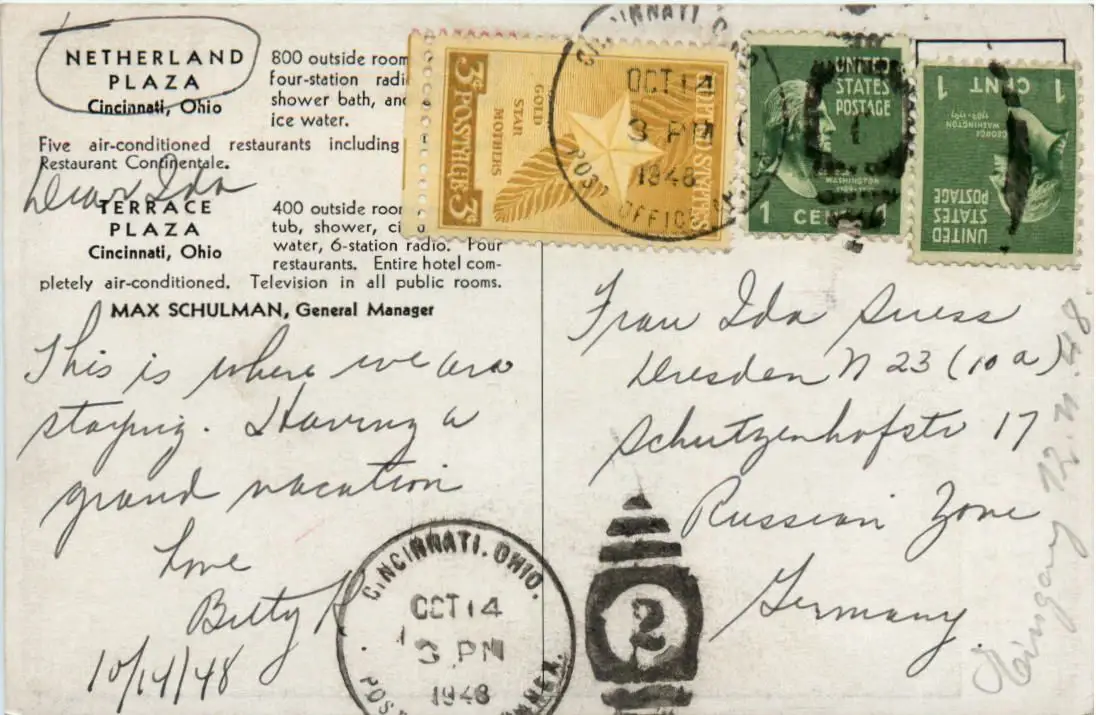 NETHERLAND
PLAZA
Cincinnati, Ohio
800 outside room
four-station radi
shower bath, and
ice water.
Five air-conditioned restaurants including
Restaurant Continentale.
Dear Ida
TERRACE
PLAZA
Cincinnati, Ohio
400 outside roo
tub, shower, ci
water, 6-station radio. Four
restaurants. Entire hotel com-
pletely air-conditioned. Television in all public rooms.
MAX SCHULMAN, General Manager
This is where we are
staying. Having a
grand vacation
Love
Betty
10/14/48
3¢ POSTAGE 3¢
GOLD
STAR
MOTHERS
UNITED STATES
CINCINNATI, O
OCT 14
3 PM
1948
POST OFFICE
UNITED
STATES
POSTAGE
WASHINGTON
1 CENT 1
1 CENT 1
GEORGE
WASHINGTON
UNITED
STATES
POSTAGE
Frau Ida Suess
Dresden N 23 (10a)
Schutzenhofstr 17
Russian Zone
Germany
CINCINNATI, OHIO.
OCT 14
3 PM
1948
POST ANNEX.
2